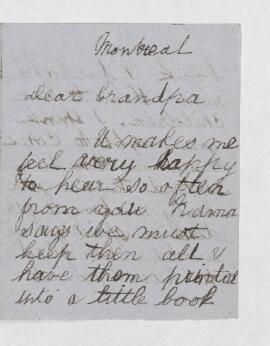 Montreal
dear Grandpa
It makes me
feel very happy
to hear so often
from you Mama
says we must
keep then all &
have them printed
into a little book